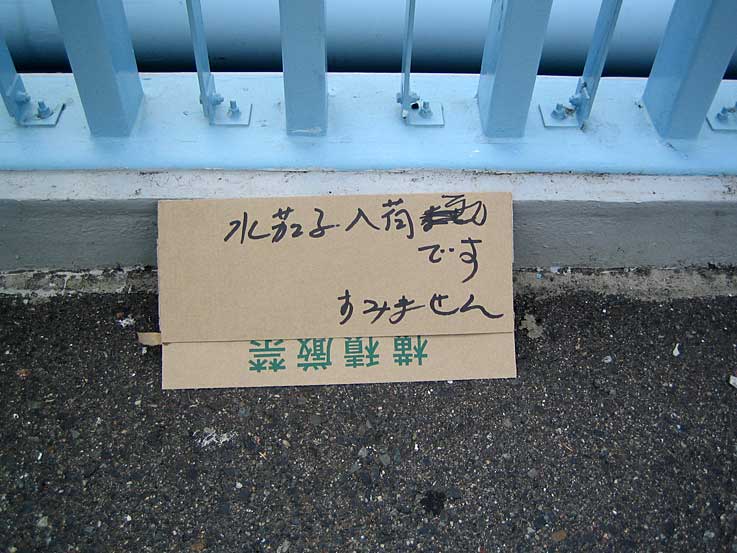 水茄子入荷
です
すみません
横積厳禁